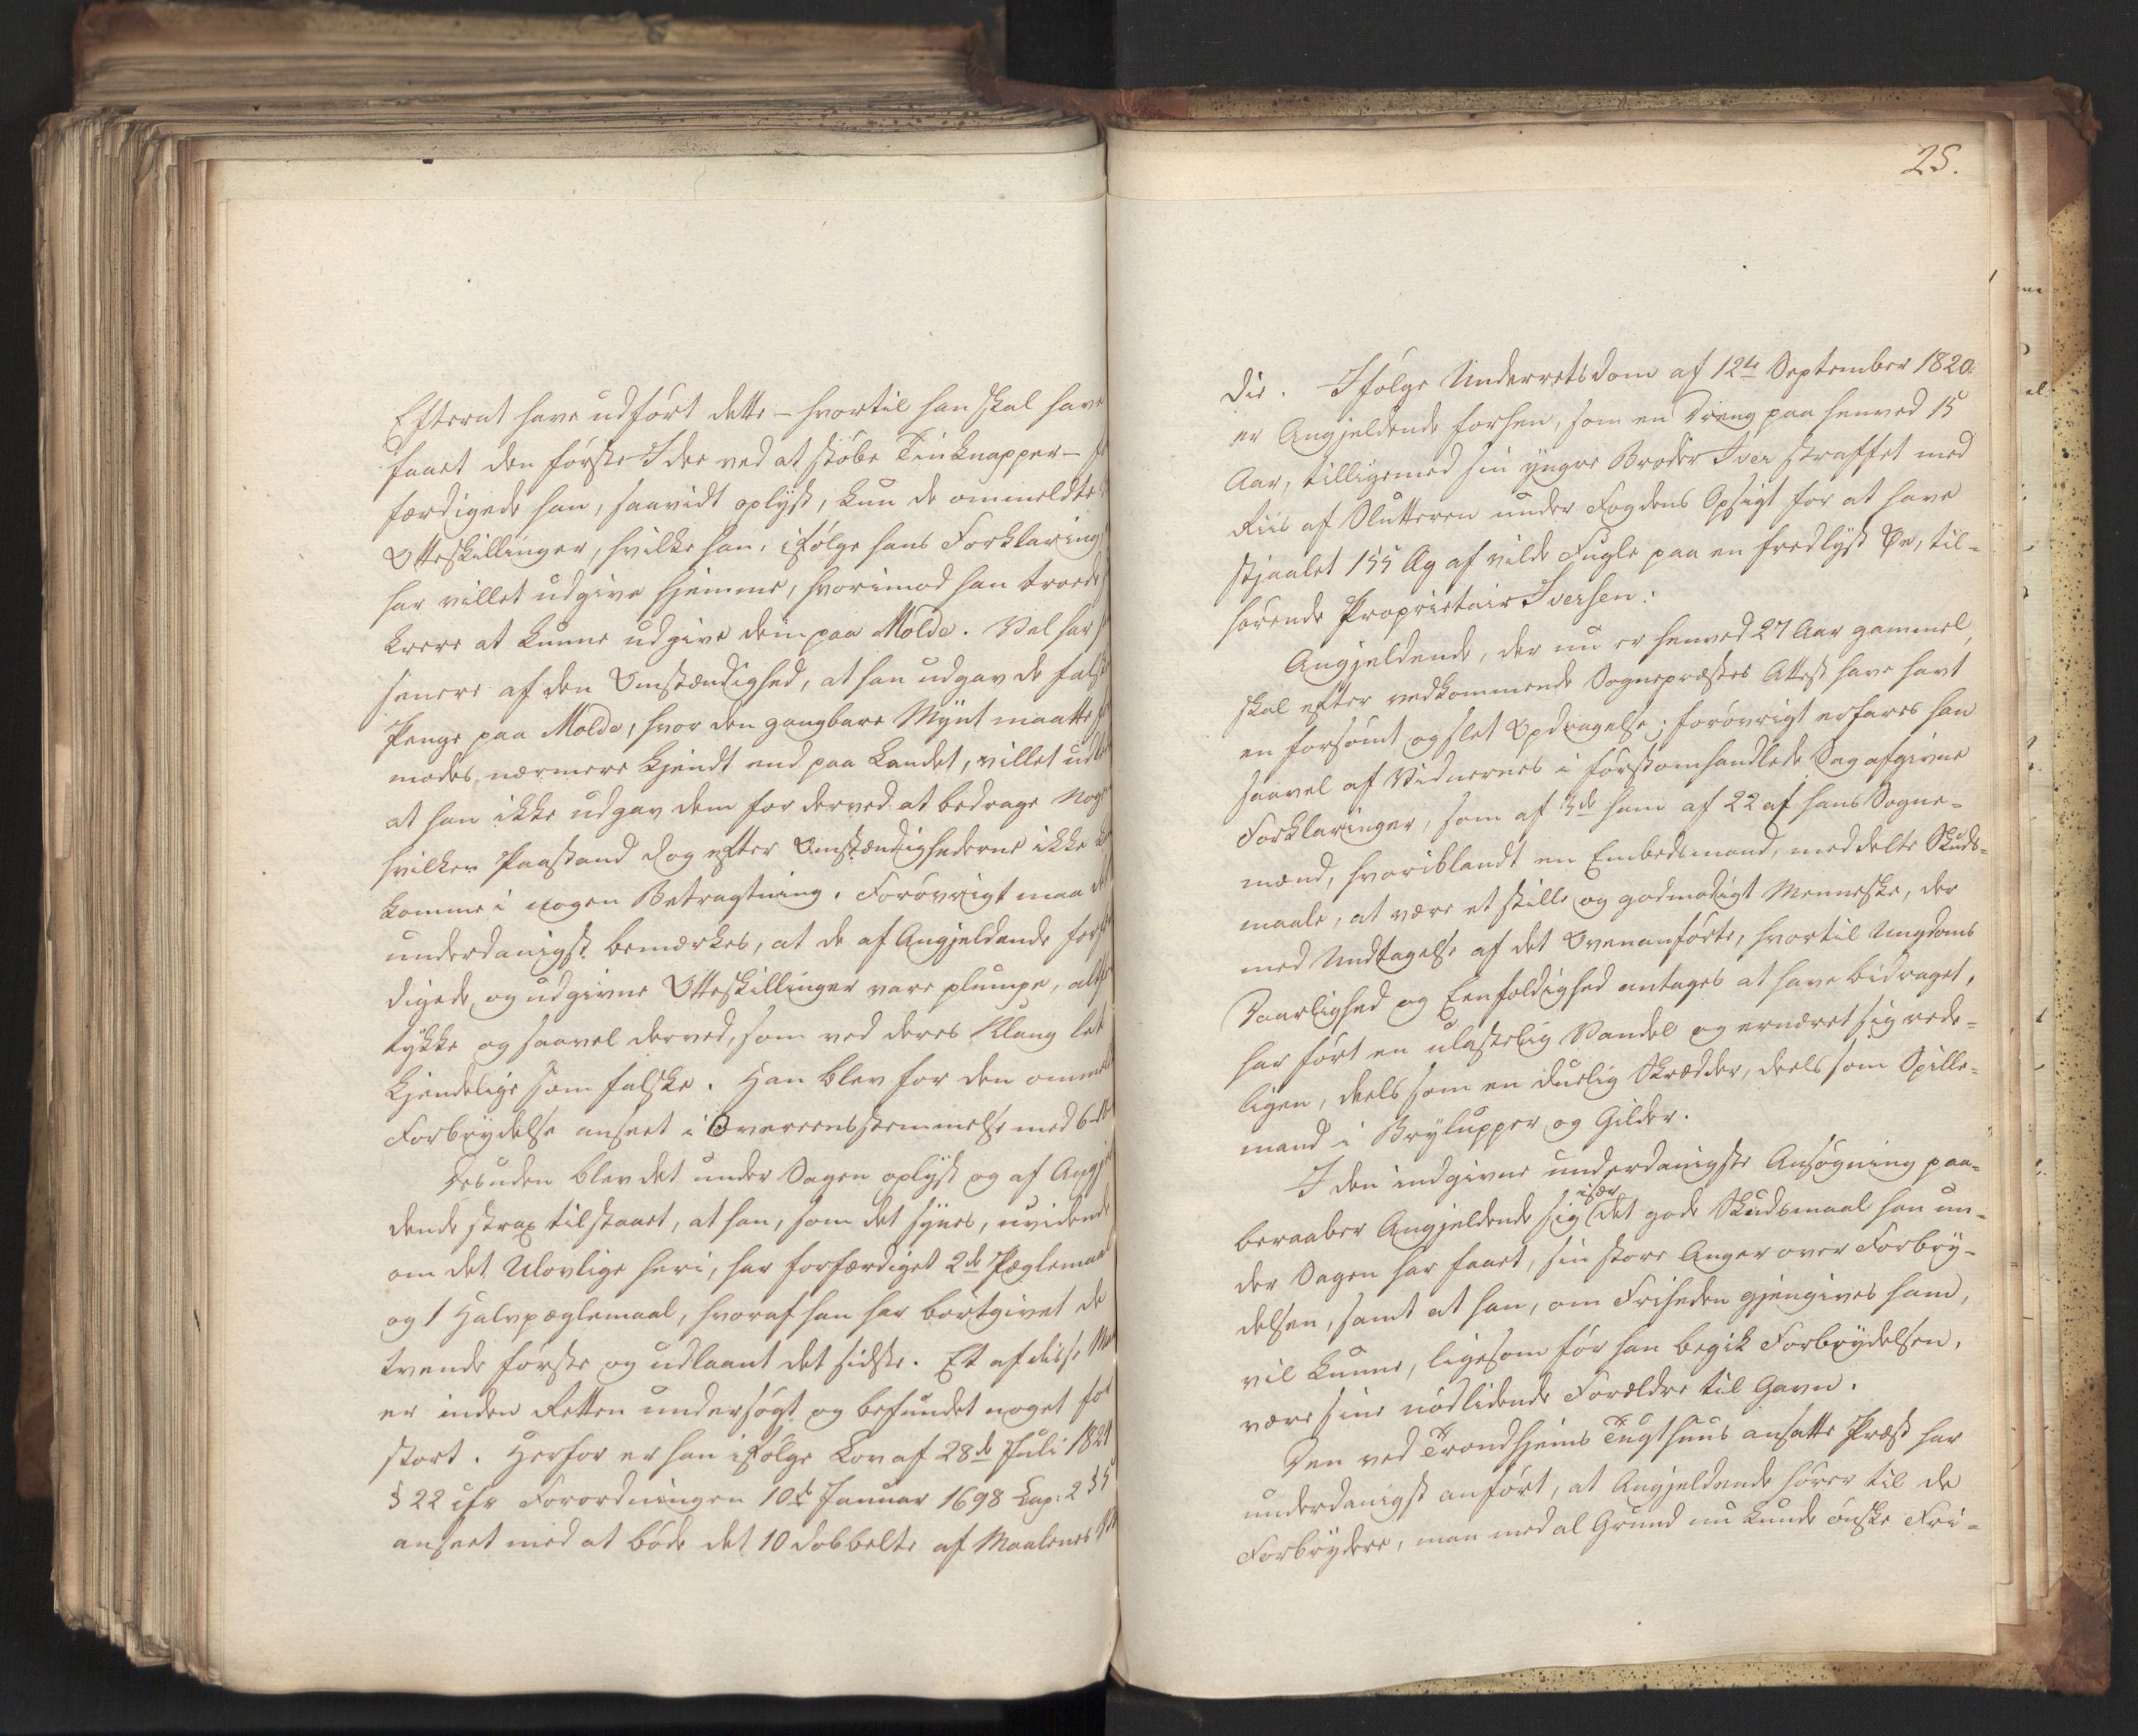 Efterat have udført dette – hvortil han skal have
faaet den første Idee ved at støbe Tinknapper –
færdigede han, saavidt oplyst, kun de ommeldte
Otteskillinger, hvilke han, ifølge hans Forklaring,
har villet udgive hjemme, hvorimod han troede
at kunne udgive dem paa Molde. Vel har
senere af den Omstændighed, at han udgav de falske
Penge paa Molde, hvor den gangbare Mynt maatte
modes nærmere kjendt end paa Landet, villet
at han ikke udgav dem for derved at bedrage
hvilken Paastand dog efter Omstændighederne ikke
komme i nogen Betragtning. Forøvrigt maa
underdanigst bemærkes, at de af Angjeldende
digede og udgivne Otteskillinger vare plumpe,
tykke og saavel derved, som ved deres Klang let
kjendelige som falske. Han blev for den
Forbrydelse anseet i Overeensstemmelse med
Desuden blev det under Sagen oplyst og af
dende strax tilstaaet, at han, som det synes, uvidende
om det Ulovlige heri, har forfærdiget 2de Pæglemaal
og 1 Halvpæglemaal, hvoraf han har bortgivet de
tvende første og udlaant det sidste. Et af disse
er inden Retten undersøgt og befundet noget for
stort. Herfor er han ifølge Lov af 28de Juli 1824
§ 22 cfr Forordningen 10de Januar 1698 Cap: 2 § 5
anseet med at bøde det 10 dobbelte af Maalenes
25.
die. Ifølge Underretsdom af 12te September 1820
er Angjeldende forhen, som en Dreng paa henved 15
Aar, tilligemed sin yngre Broder Iver straffet med
Riis af Slutteren under Fogdens Opsigt for at have
stjaalet 155 Æg af vilde Fugle paa en fredlyst Øe, til-
hørende Proprietair Iversen.
Angjeldende, der nu er henved 27 Aar gammel,
skal efter vedkommende Sognepræstes Attest have havt
en forsømt og slet Opdragelse; forøvrigt erfares han
saavel af Vidnernes i førstomhandlede Sag afgivne
Forklaringer, som af 3de ham af 22 af hans Sogne-
mænd, hvoriblandt en Embedsmand, meddelte Skuds-
maale, at være et stille og godmodigt Menneske, der
med Undtagelse af det Ovenanførte, hvortil Ungdoms
Daarlighed og Eenfoldighed antages at have bidraget,
har ført en ulastelig Vandel og ernæret sig rede-
ligen, deels som en duelig Skrædder, deels som Spille-
mand i Bryllupper og Gilder.
I den indgivne underdanigste Ansøgning paa-
beraaber Angjeldende sig især det gode Skudsmaal han un-
der Sagen har faaet, sin store Anger over Forbry-
delsen, samt at han, om Friheden gjengives ham,
vil kunne, ligesom før han begik Forbrydelsen,
være sine nødlidende Forældre til Gavn.
Den ved Trondhjems Tugthuus ansatte Præst har
underdanigst anført, at Angjeldende hører til de
Forbrydere, man med al Grund nu kunde ønske Fri-